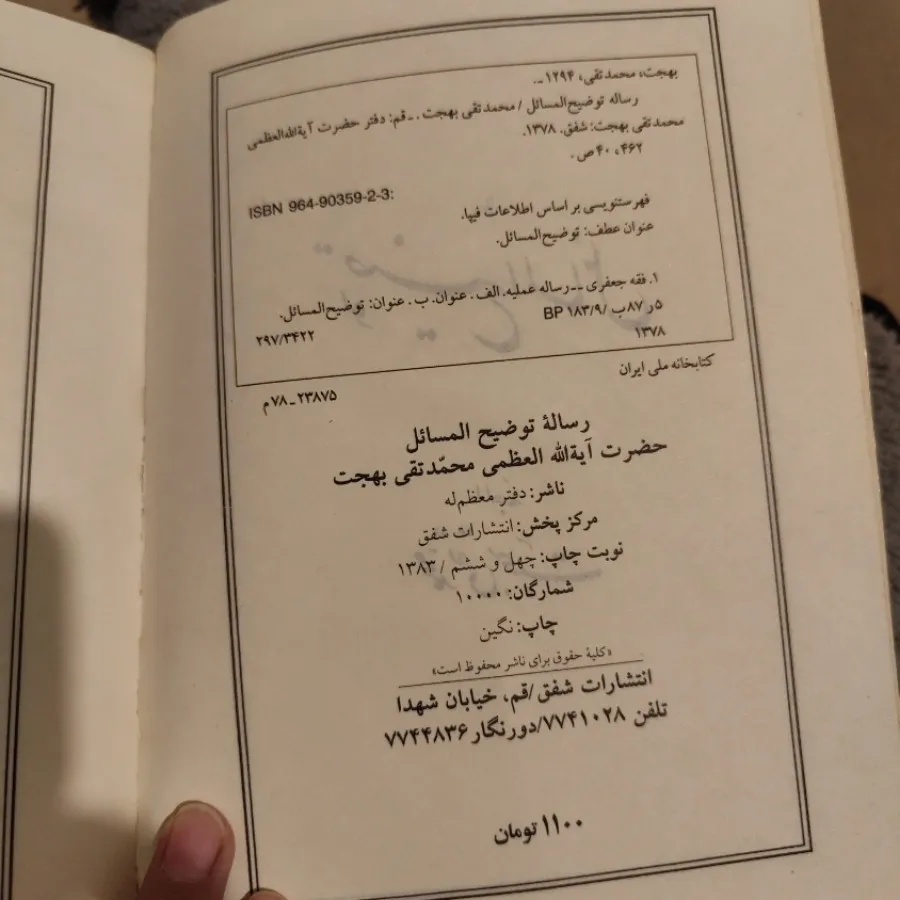 بهجت، محمدتقی، ۱۲۹۴ ـ.
رساله توضیح‌المسائل / محمدتقی بهجت. ـ قم: دفتر حضرت آیةالله‌العظمی
محمدتقی بهجت: شفق. ۱۳۷۸.
۴۶۲، ۴۰ ص.
ISBN 964-90359-2-3:
فهرستنویسی بر اساس اطلاعات فیپا.
عنوان عطف: توضیح‌المسائل.
۱. فقه جعفری ــ رساله عملیه. الف. عنوان. ب. عنوان: توضیح‌المسائل.
۵ر۸۷ب / BP ۱۸۳/۹ ۲۹۷/۳۴۲۲
۱۳۷۸
کتابخانه ملی ایران
۲۳۸۷۵ـ۷۸م
رسالهٔ توضیح المسائل
حضرت آیةالله العظمی محمّدتقی بهجت
ناشر: دفتر معظم‌له
مرکز پخش: انتشارات شفق
نوبت چاپ: چهل و ششم / ۱۳۸۳
شمارگان: ۱۰۰۰۰
چاپ: نگین
«کلیهٔ حقوق برای ناشر محفوظ است»
انتشارات شفق/قم، خیابان شهدا
تلفن ۷۷۴۱۰۲۸/دورنگار ۷۷۴۴۸۳۶
۱۱۰۰ تومان